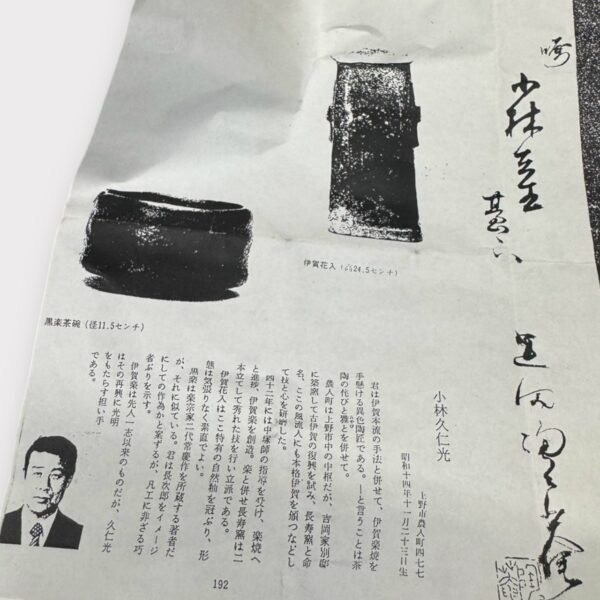 小林
伊賀花入（高24.5センチ）
黒楽茶碗（径11.5センチ）
小林久仁光
上野市農人町四七七
昭和十四年十一月二十三日生
君は伊賀本流の手法と併せて、伊賀楽焼を
手懸ける異色陶匠である。―と言うことは茶
陶の侘びと雅とを併せて。
農人町は上野市中の中枢だが、吉岡家別邸
に築窯して古伊賀の復興を試み、長寿窯と命
名、ここの風流人にも本格伊賀を頒つなどし
て技と心を研磨した。
四十二年には中塚師の指導を受け、楽焼へ
と進捗、伊賀楽を創造。楽と併せ長寿窯は二
本立てして秀れた技を行い立派である。
伊賀花入はここ特有の自然釉を冠ぶり、形
態は気張りなく素直でよい。
黒楽は楽宗家二代常慶作を所蔵する著者だ
が、それに似ている。君は長次郎をイメージ
にしての作為かと案ずるが、凡工に非ざる巧
者ぶりを示す。
伊賀楽は先人一志以来のものだが、久仁光
はその再興に光明
をもたらす担い手
である。
192